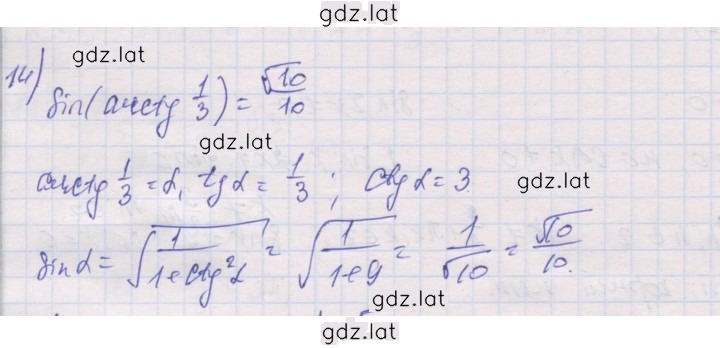 gdz.lat
gdz.lat
14) sin(arctg 1/3) = √10/10
gdz.lat
arctg 1/3 = α, tg α = 1/3; ctg α = 3
gdz.lat
sin α = √(1/(1+ctg²α)) = √(1/(1+9)) = 1/√10 = √10/10.
gdz.lat
gdz.lat